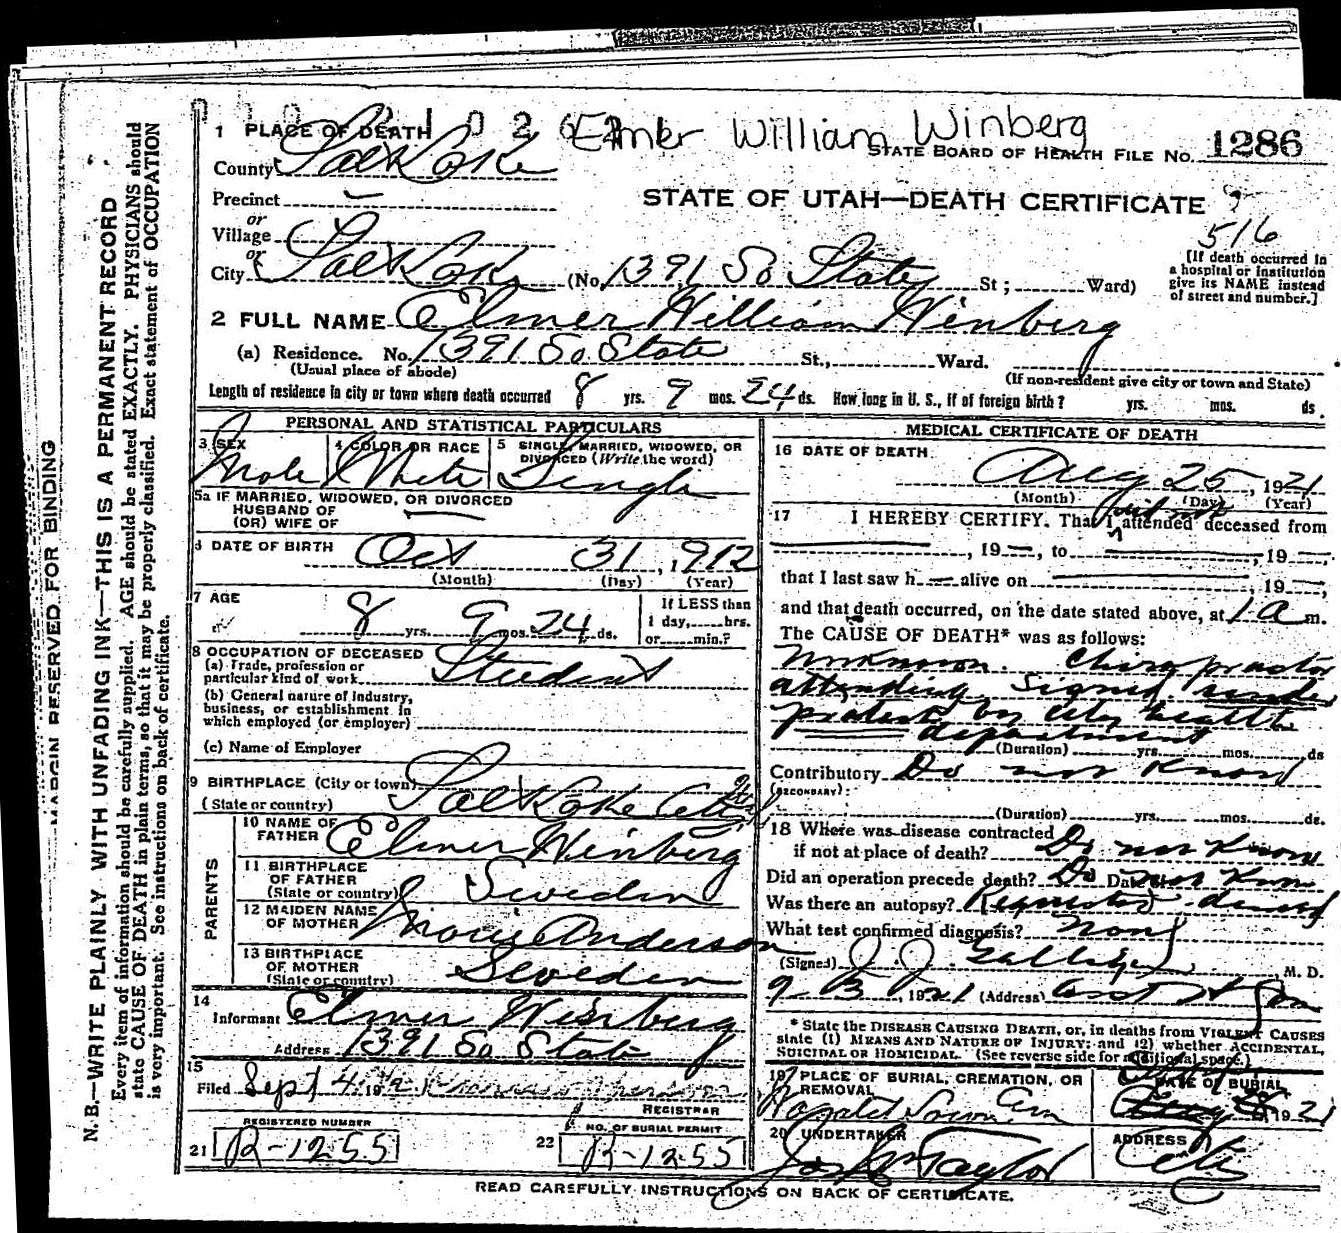 MARGIN RESERVED FOR BINDING
N. B.—WRITE PLAINLY WITH UNFADING INK—THIS IS A PERMANENT RECORD
Every item of information should be carefully supplied. AGE should be stated EXACTLY. PHYSICIANS should
state CAUSE OF DEATH in plain terms, so that it may be properly classified. Exact statement of OCCUPATION
is very important. See instructions on back of certificate.
Elmer William Winberg
1 PLACE OF DEATH
STATE BOARD OF HEALTH FILE NO. 1286
County Salt Lake
Precinct
STATE OF UTAH—DEATH CERTIFICATE
516
or
Village
or
City Salt Lake (No. 1391 So State St; Ward)
[If death occurred in
a hospital or institution
give its NAME instead
of street and number.]
2 FULL NAME Elmer William Winberg
(a) Residence. No. 1391 So State St., Ward.
(Usual place of abode) (If non-resident give city or town and State)
Length of residence in city or town where death occurred 8 yrs. 9 mos. 24 ds. How long in U. S., if of foreign birth? yrs. mos. ds.
PERSONAL AND STATISTICAL PARTICULARS
3 SEX 4 COLOR OR RACE 5 SINGLE, MARRIED, WIDOWED, OR
DIVORCED (Write the word)
Male White Single
5a IF MARRIED, WIDOWED, OR DIVORCED
HUSBAND OF
(OR) WIFE OF
6 DATE OF BIRTH Oct 31, 1912
(Month) (Day) (Year)
7 AGE
8 yrs. 9 mos. 24 ds.
If LESS than
1 day, hrs.
or min.?
8 OCCUPATION OF DECEASED
(a) Trade, profession or
particular kind of work Student
(b) General nature of Industry,
business, or establishment in
which employed (or employer)
(c) Name of Employer
9 BIRTHPLACE (City or town)
(State or country) Salt Lake City
PARENTS
10 NAME OF
FATHER Elmer Winberg
11 BIRTHPLACE
OF FATHER
(State or country) Sweden
12 MAIDEN NAME
OF MOTHER Anderson
13 BIRTHPLACE
OF MOTHER
(State or country) Sweden
14
Informant Elmer Winberg
Address 1391 So State
15
Filed Sept 4 19
REGISTRAR
REGISTERED NUMBER
21 R-1255
NO. OF BURIAL PERMIT
22 R-1255
MEDICAL CERTIFICATE OF DEATH
16 DATE OF DEATH
Aug 25, 1921
(Month) (Day) (Year)
17 I HEREBY CERTIFY. That I did not attended deceased from
, 19 , to , 19 ,
that I last saw h alive on , 19 ,
and that death occurred, on the date stated above, at 1 a m.
The CAUSE OF DEATH* was as follows:
Unknown. Chiropractor
attending. Signed under
protest by city health
department
(Duration) yrs. mos. ds
Contributory Do not Know
(SECONDARY)
(Duration) yrs. mos. ds.
18 Where was disease contracted
if not at place of death? Do not Know
Did an operation precede death? Do not Know Date of
Was there an autopsy? Requested denied
What test confirmed diagnosis? None
(Signed) J. J. , M. D.
9-3, 1921 (Address)
* State the DISEASE CAUSING DEATH, or, in deaths from VIOLENT CAUSES
state (1) MEANS AND NATURE OF INJURY; and (2) whether ACCIDENTAL,
SUICIDAL OR HOMICIDAL. (See reverse side for additional space.)
19 PLACE OF BURIAL, CREMATION, OR
REMOVAL
DATE OF BURIAL
Cem 1921
20 UNDERTAKER
Taylor
ADDRESS
City
READ CAREFULLY INSTRUCTIONS ON BACK OF CERTIFICATE.